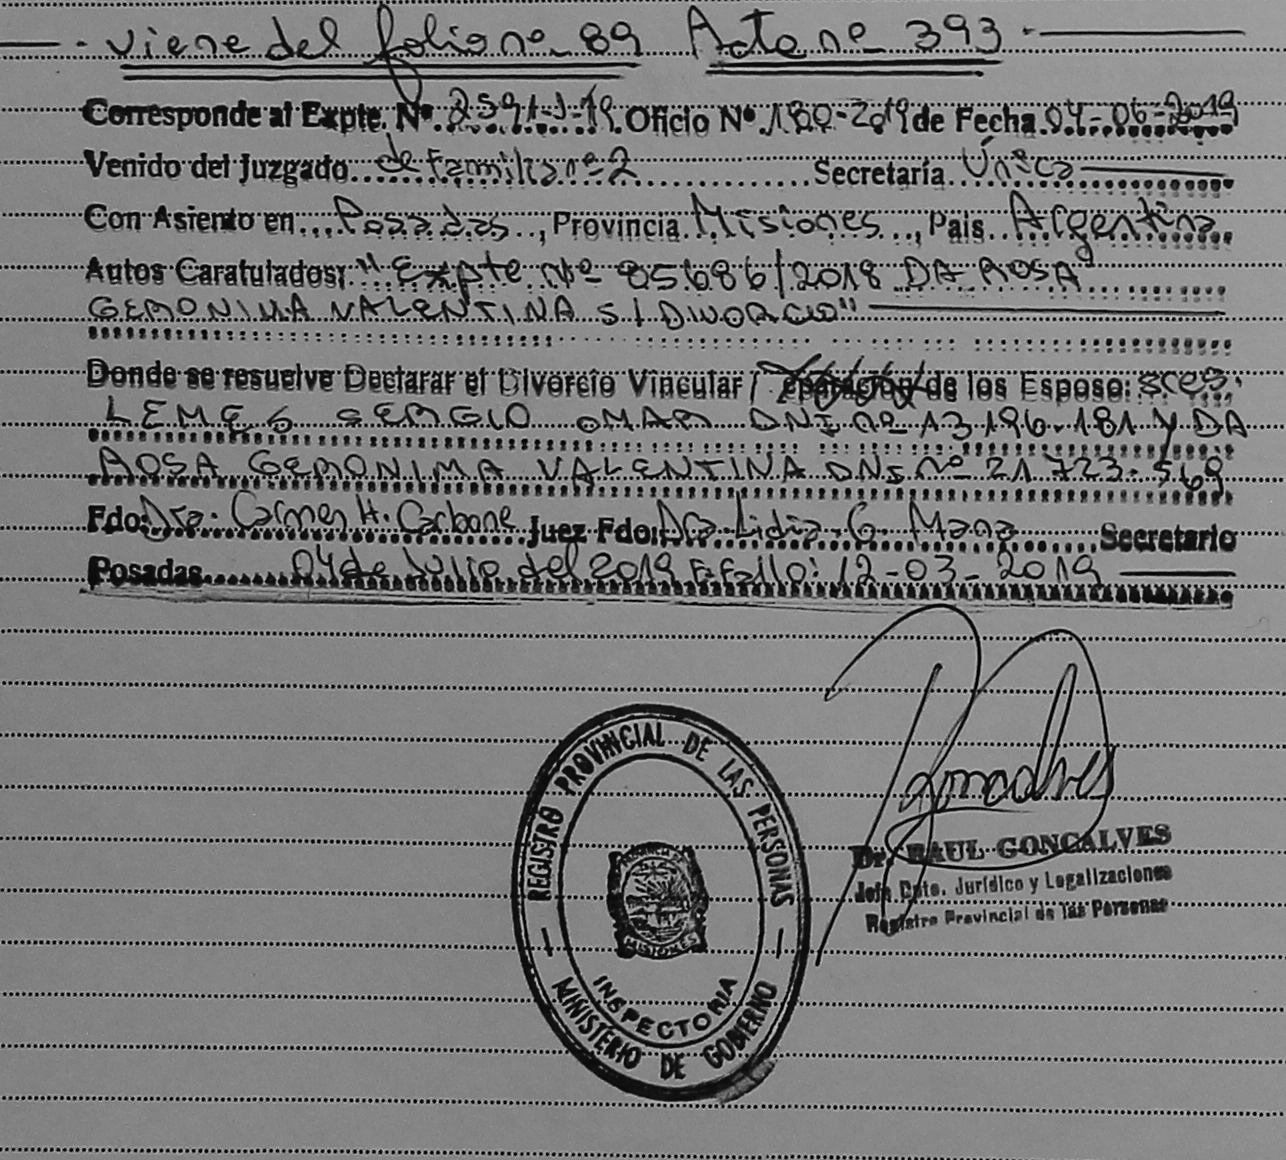 - Viene del folio nº 89 Acta nº 393 -
Corresponde al Expte. Nº 2591-J-19 Oficio Nº 180-2019 de Fecha 04-06-2019
Venido del Juzgado de Familia nº 2 Secretaría Única
Con Asiento en Posadas, Provincia Misiones, Pais Argentina
Autos Caratulados: "Expte nº 85686/2018 DA ROSA
GERONIMA VALENTINA S/DIVORCIO"
Donde se resuelve Declarar el Divorcio Vincular / de los Esposo: sres.
LEMES SERGIO OMAR DNI nº 13.196.181 Y DA
ROSA GERONIMA VALENTINA DNI nº 21.723.569
Fdo: Dra. Carmen H. Carbone Juez Fdo: Dra Lidia G. Secretario
Posadas 04 de Julio del 2019 F. Fallo: 12-03-2019
REGISTRO PROVINCIAL DE LAS PERSONAS
MISIONES
INSPECTORIA
MINISTERIO DE GOBIERNO
Goncalves
Dr. RAUL GONCALVES
Jefe Dpto. Jurídico y Legalizaciones
Registro Provincial de las Personas